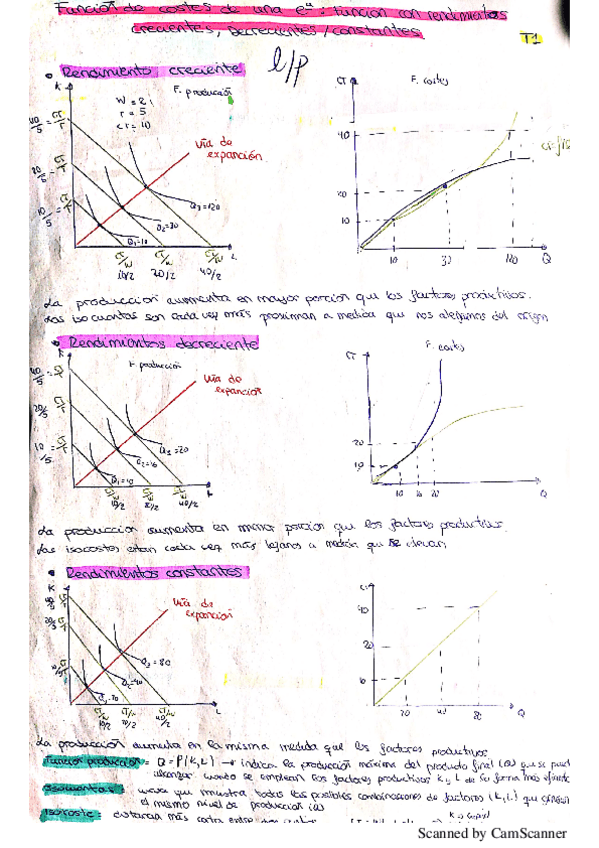 Función de costes de una eª: función con rendimientos
crecientes, decrecientes / constantes
T1
l/p
Rendimiento creciente
K
F. producción
W = 2
r = 5
CT = 10
Vía de
expansión
40/5 = CT/r
20/5 = CT/r
10/5 = CT/r
Q3 = 120
Q2 = 30
Q1 = 10
CT/W CT/W CT/W L
10/2 20/2 40/2
CT
F. costes
40
20
10
10 30 120 Q
La producción aumenta en mayor porción que los factores productivos.
Las isocuantas son cada vez más proximan a medida que nos alejamos del origen
Rendimientos decreciente
K
F. producción
Vía de
expansión
40/5 = CT/r
20/5 = CT/r
10/5 = CT/r
Q3 = 20
Q2 = 16
Q1 = 10
10/2 20/2 40/2 L
CT
F. costes
20
10
10 16 20 Q
La producción aumenta en menor porción que los factores productivos.
Las isocostes estan cada vez más lejanos a medida que se elevan
Rendimientos constantes
K
Vía de
expansión
Q3 = 80
Q2 = 40
Q1 = 20
CT/W CT/W CT/W L
10/2 20/2 40/2
CT
40
20
10
20 40 80 Q
La producción aumenta en la misma medida que los factores productivos
Función producción = Q = F(K,L) → indica la producción máxima del producto final (Q) que se puede
alcanzar cuando se emplean los factores productivos K y L de su forma más eficiente
Isocuantas: curva que muestra todas las posibles combinaciones de factores (K,L) que
el mismo nivel de producción (Q)
Isocoste:
K = Capital
Scanned by CamScanner